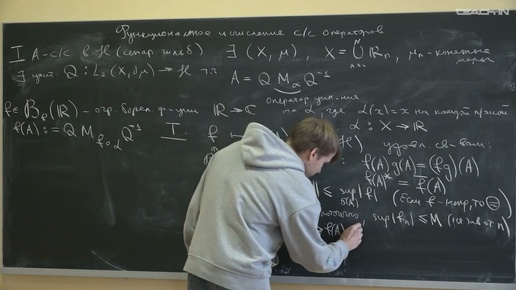 Функциональное исчисление с/с операторов
I A - с/с в H (сепар. гильб) ∃ (X, μ), X = ⋃ ℝₙ, μₙ - конечные меры
∃ унит. Q : L₂(X, dμ) → H т.ч. A = Q M_α Q⁻¹
оператор умн-ния на α, где α(x) = x на каждой прямой
f ∈ B_b(ℝ) - огр. борел. ф-ции ℝ → ℂ α : X → ℝ
f(A) := Q M_{f∘α} Q⁻¹ I. f ↦ удовл. св-вам:
f(A) g(A) = (fg)(A)
f(A)* = f̄(A)
≤ sup |f| (Если f - непр, то =)
поточечно sup |fₙ| ≤ M (не зав. от n)
f(A)